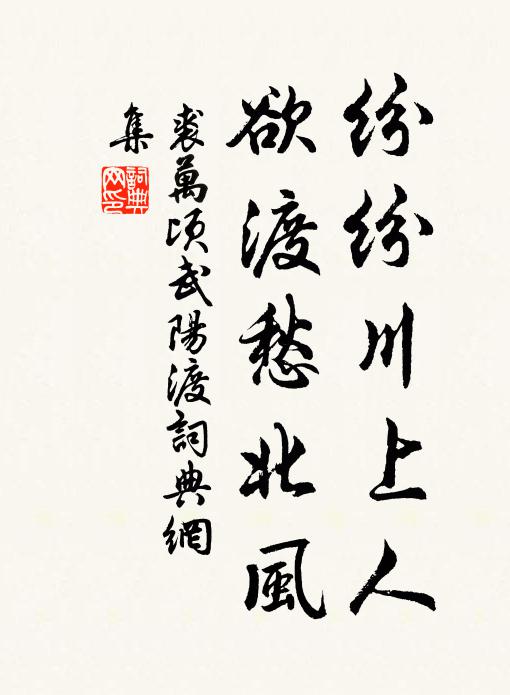 紛紛川上人
欲渡愁北風
裘萬頃武陽渡詞典網
集
詞典
网印